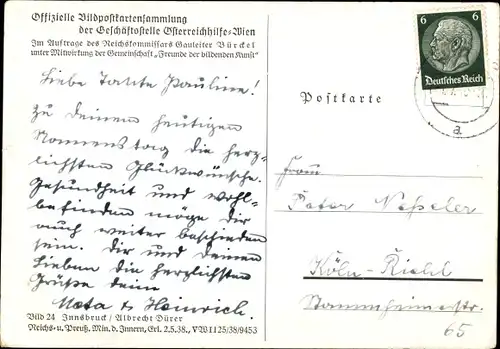 Offizielle Bildpostkartensammlung
der Geschäftsstelle Österreichhilfe-Wien
Im Auftrage des Reichskommissars Gauleiter Bürckel
unter Mitwirkung der Gemeinschaft „Freunde der bildenden Kunst"
Liebe Tante Pauline!
Zu Deinem heutigen
Namenstag die herz-
lichsten Glückwünsche.
Gesundheit und wohl-
befinden möge Dir
auch weiter beschieden
sein. Dir und Deinen
Lieben die herzlichsten
Grüße Deine
Meta & Heinrich.
Bild 24 Innsbruck / Albrecht Dürer
Reichs- u. Preuß. Min. d. Innern, Erl. 2.5.38., V W II 25/38/9453
6 6
Deutsches Reich
a
Postkarte
Peter
Köln-Riehl
Stammheimerstr.
65